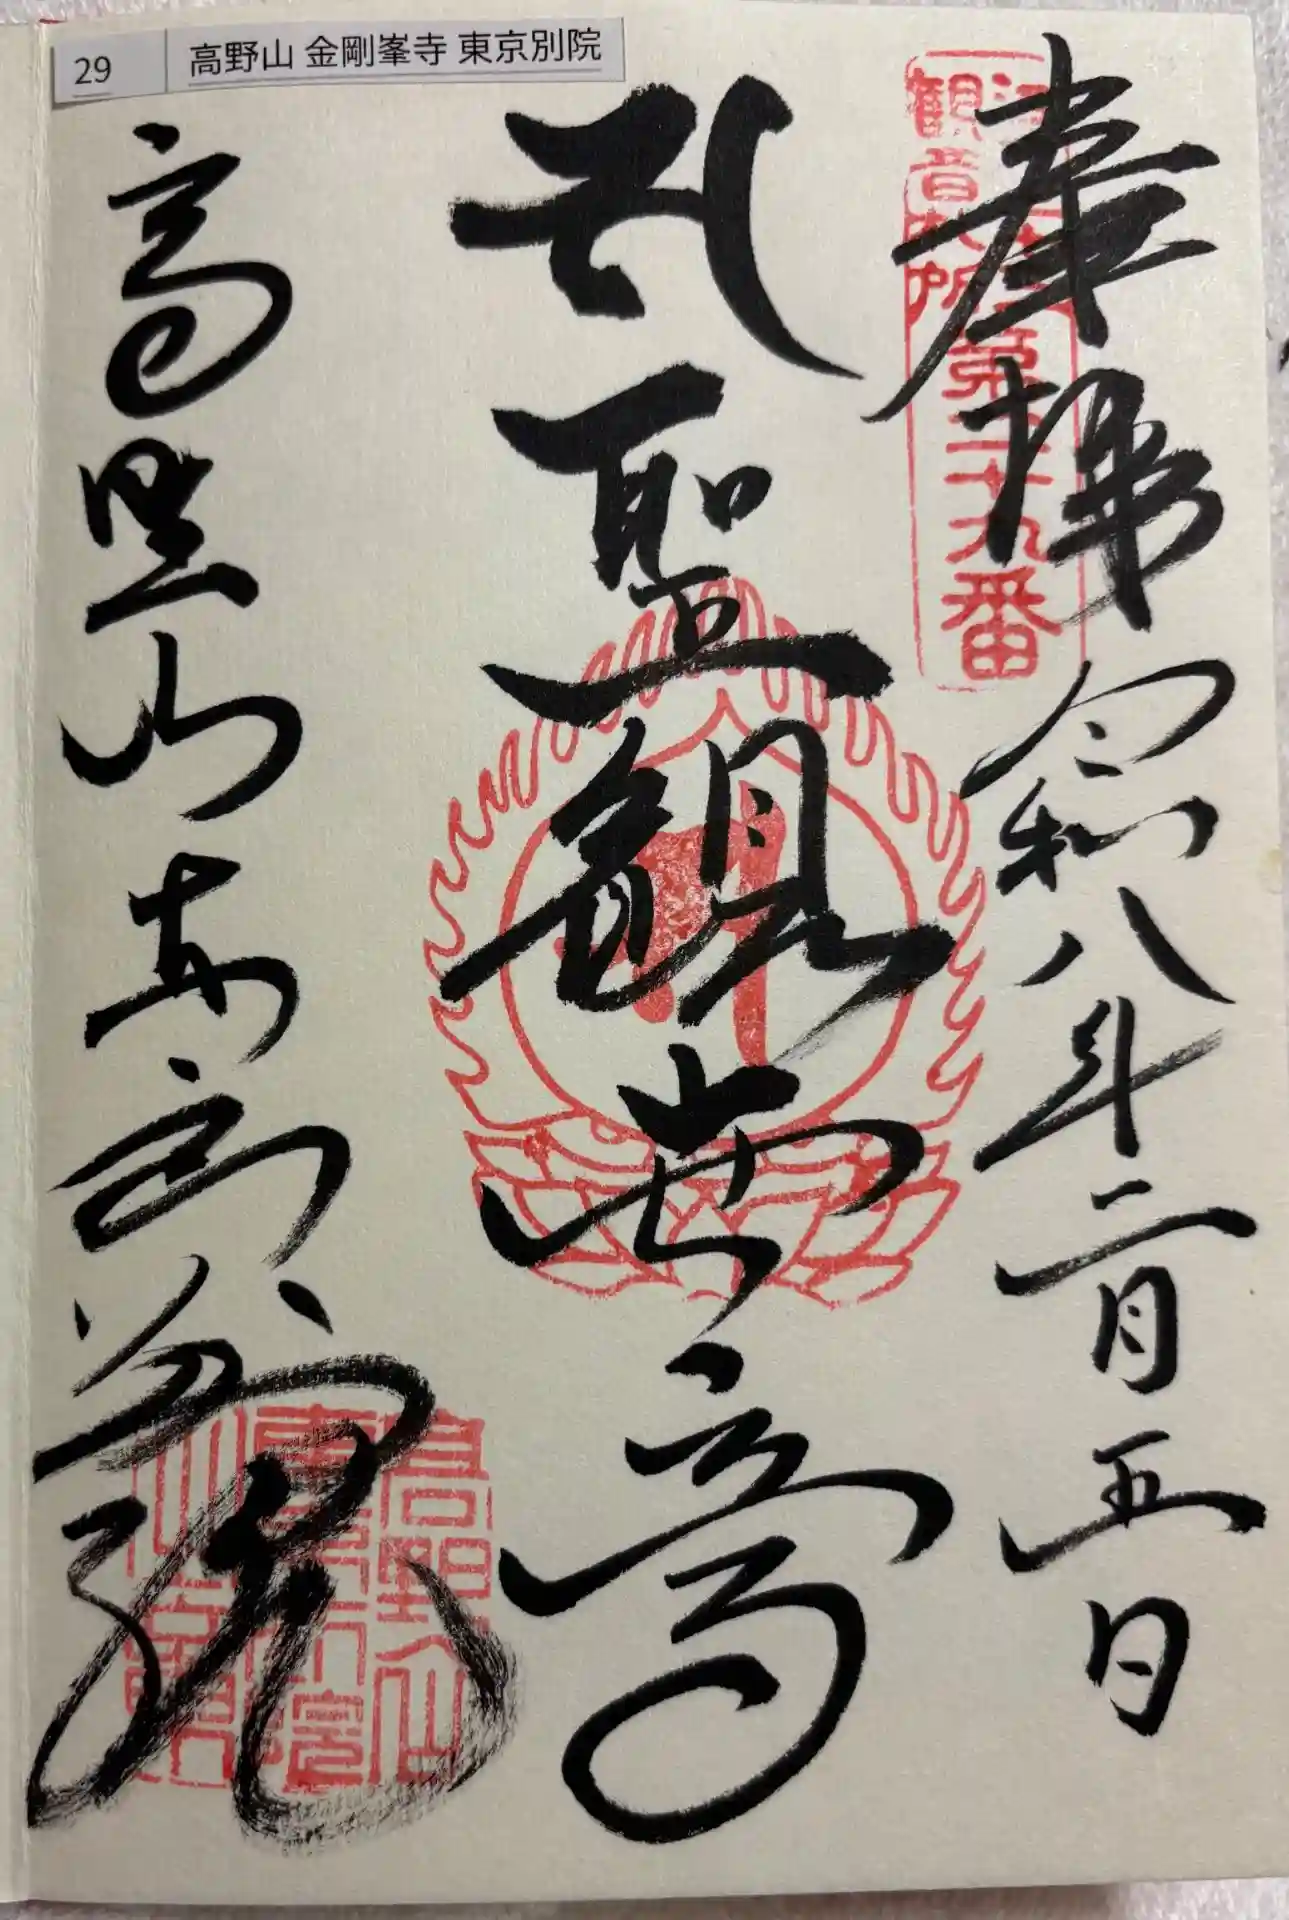 29 高野山 金剛峯寺 東京別院
奉拝 令和八年二月五日
江戸三十三
観音札所
第二十九番
聖観世音
高野山東京別院
高野山
東京別院